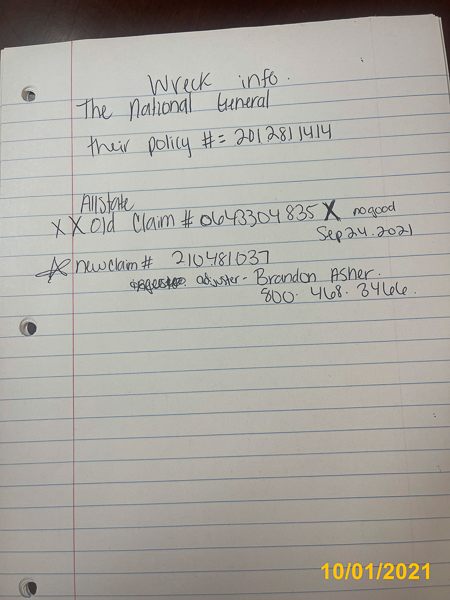 Wreck info.
The National General
their policy #= 2012811414
Allstate
XX Old Claim # 0643304835 X no good
Sep 24. 2021
☆ new claim # 210481037
adjuster - Brandon Asher.
800. 468. 3466.
10/01/2021